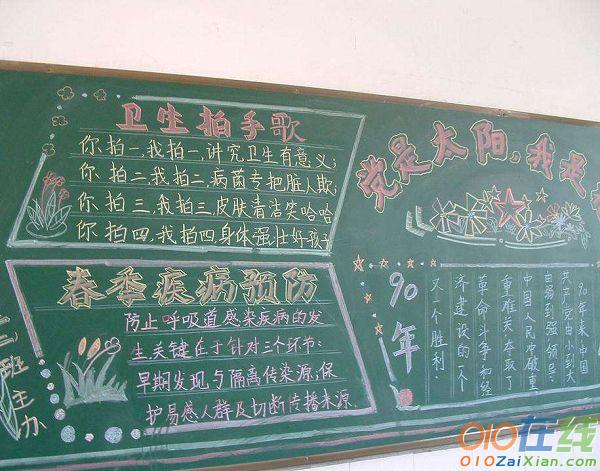 卫生拍手歌
你拍一,我拍一,讲究卫生有意义;
你拍二我拍二,病菌专把脏人欺;
你拍三,我拍三皮肤青洁笑哈哈
你拍四,我拍四身体强壮好孩子
春季疾病预防
防止呼吸道感染疾病的发
生关键在于针对三个环节:
早期发现与隔离传染源,保
护易感人群及切断传播来源.
班主办
党是太阳,我是
90年
90年来中国
共产党由小到大
由弱到强,领导
中国人民冲破重
重难关夺取了
革命斗争和经
济建设的一个
又一个胜利.
010在线
010ZaiXian.com